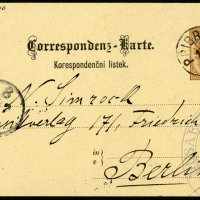 Correspondenz-Karte.
Korespondenční listek.
N. Simrock
verlag 171, Friedrich
in
Berlin